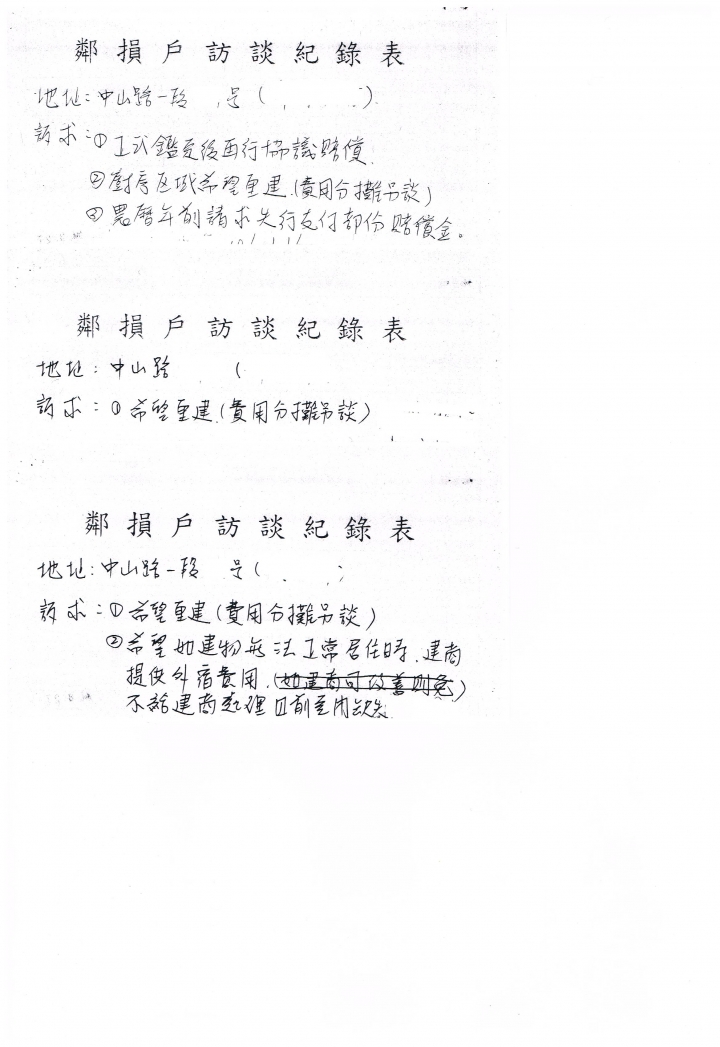 鄰損戶訪談紀錄表
地址:中山路一段 号( )
訴求:①正式鑑定後再行協議賠償.
②廚房区域希望重建.(費用分攤另談)
③農曆年前請求先行支付部份賠償金。
鄰損戶訪談紀錄表
地址:中山路 (
訴求:①希望重建.(費用分攤另談)
鄰損戶訪談紀錄表
地址:中山路一段 号(
訴求:①希望重建(費用分攤另談)
②希望如建物無法正常居住時.建商
提供外宿費用.(如建商可改善則免)
不給建商處理目前室內缺失.